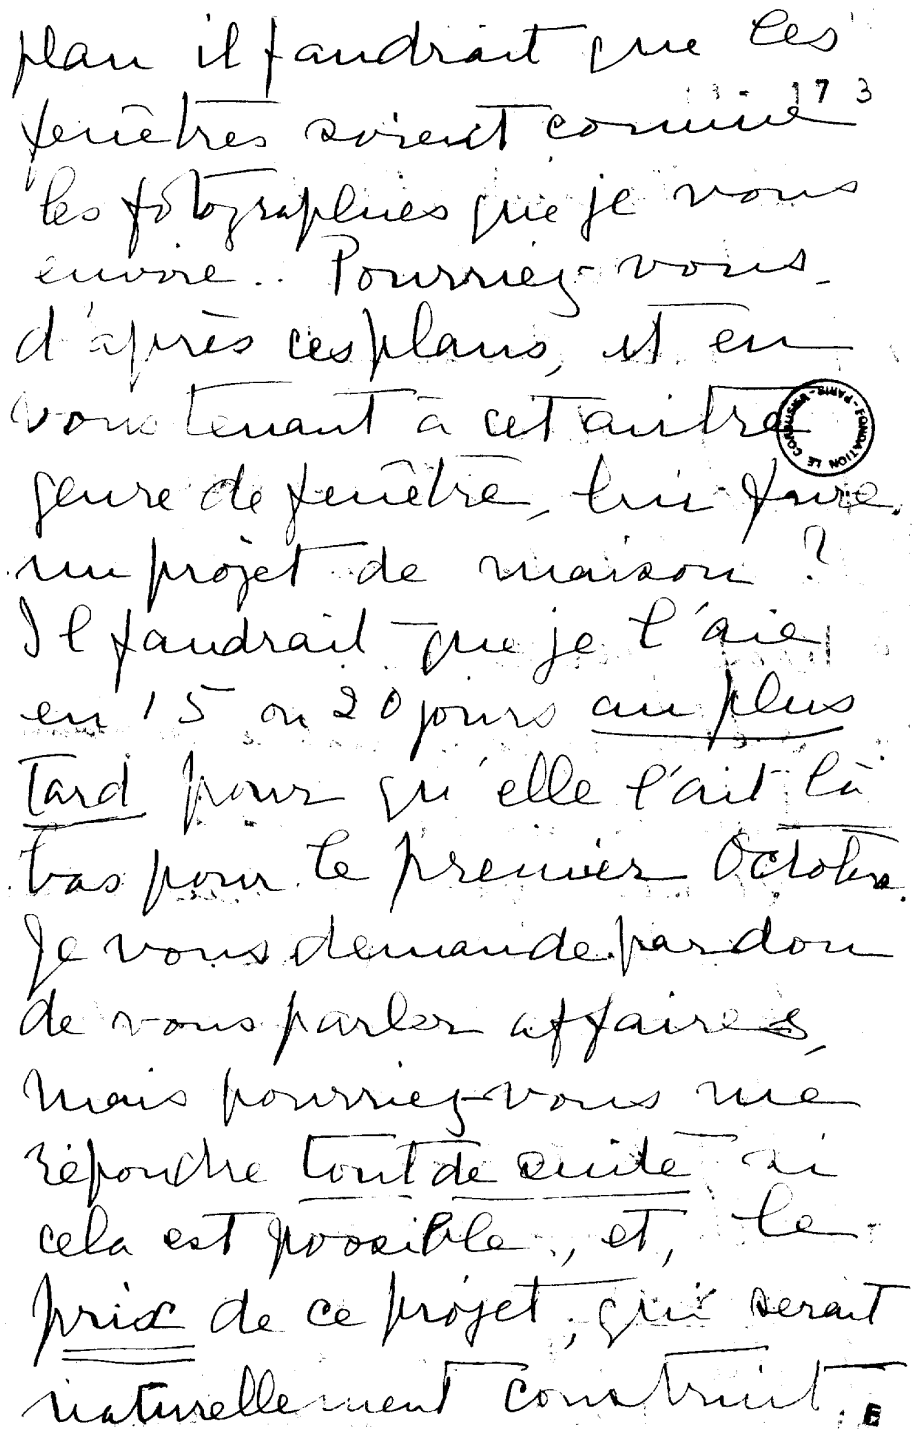 plan il faudrait que les
173
fenêtres soient comme
les fotographies que je vous
envoie.. Pourriez-vous
d'après ces plans, et en
vous tenant à cet autre
FONDATION LE CORBUSIER - PARIS -
genre de fenêtre, lui faire
un projet de maison ?
Il faudrait que je l'aie
en 15 ou 20 jours au plus
tard pour qu'elle l'ait là
bas pour le premier Octobre.
Je vous demande pardon
de vous parler affaires,
mais pourriez-vous me
répondre tout de suite si
cela est possible, et, le
prix de ce projet, qui serait
naturellement construit.
E